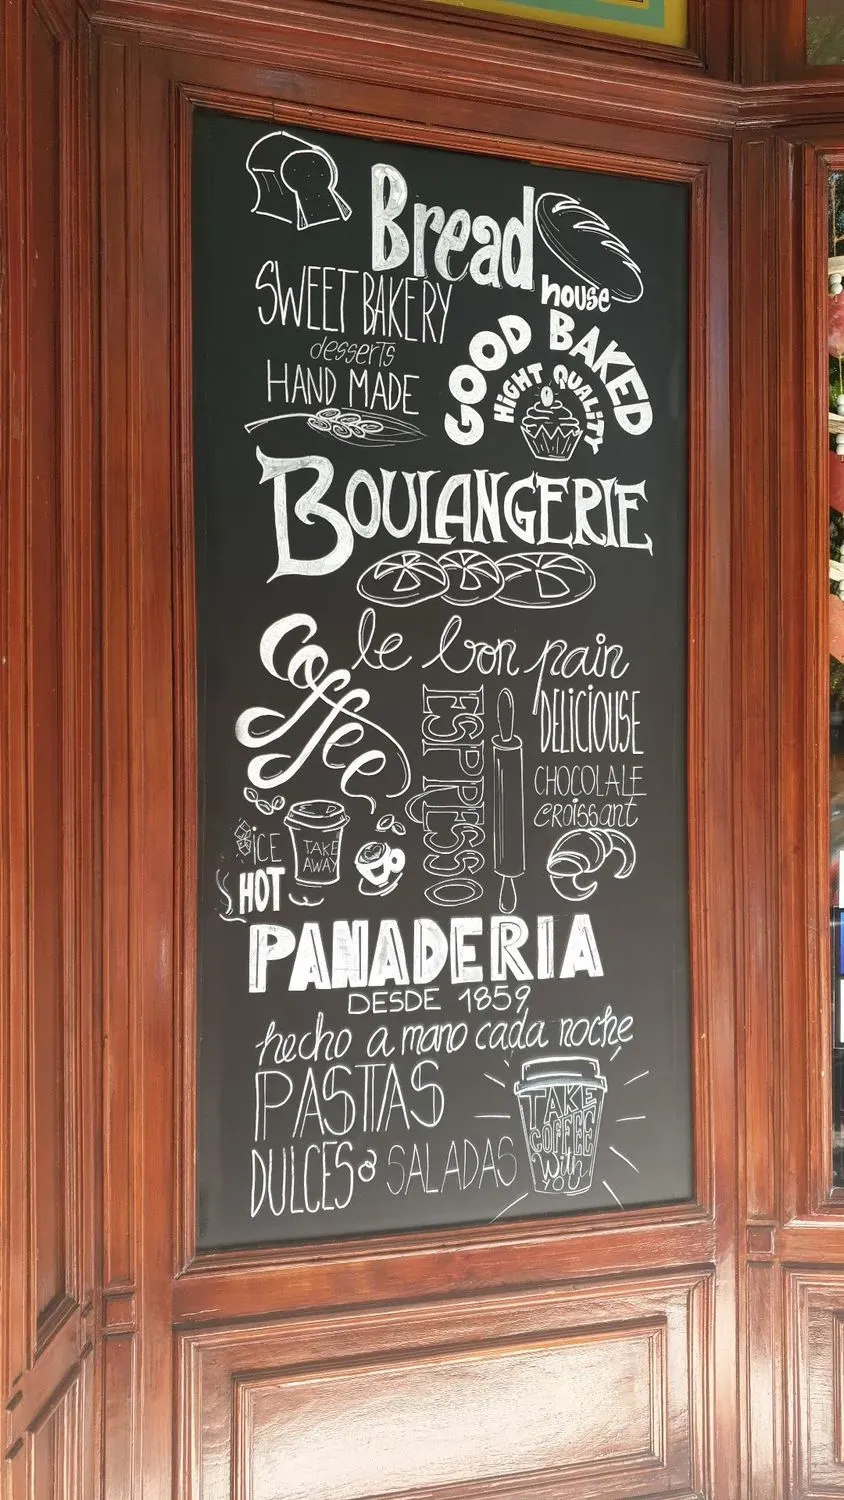 Bread
house
SWEET BAKERY
desserts
HAND MADE
GOOD BAKED
HIGHT QUALITY
BOULANGERIE
le bon pain
Coffee
ESPRESSO
DELICIOUSE
CHOCOLALE
CROISSANT
ICE
HOT
TAKE
AWAY
PANADERIA
DESDE 1859
hecho a mano cada noche
PASTAS
DULCES & SALADAS
TAKE
COFFEE
With
YOU